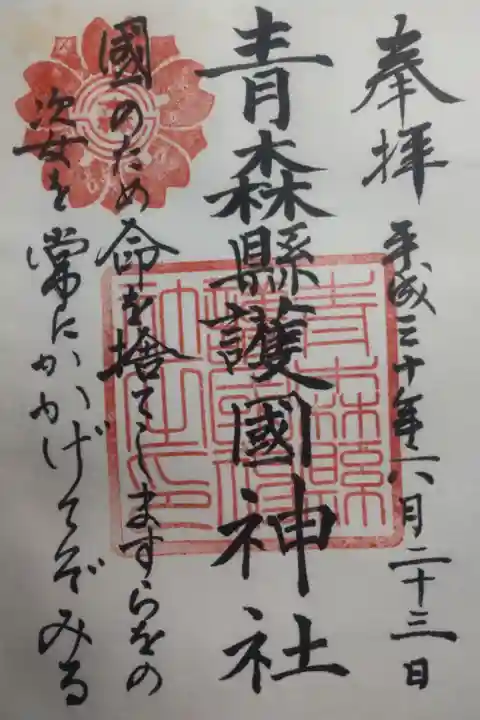 奉拝
平成三十年六月二十三日
青森縣護國神社
國のため命を捨てしますらをの
姿を常にかかげてぞみる
青森縣護國神社之印